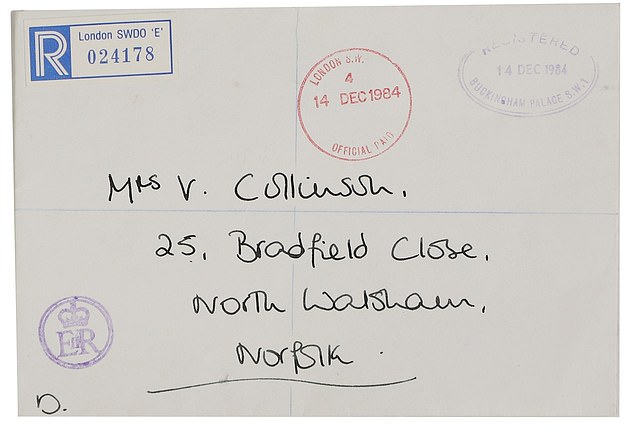 R London SWDO 'E'
024178
LONDON S.W.
4
14 DEC 1984
OFFICIAL PAID
REGISTERED
14 DEC 1984
BUCKINGHAM PALACE S.W.1
Mrs V. Collinson.
25, Bradfield Close,
North Walsham,
Norfolk.
EIIR
D.